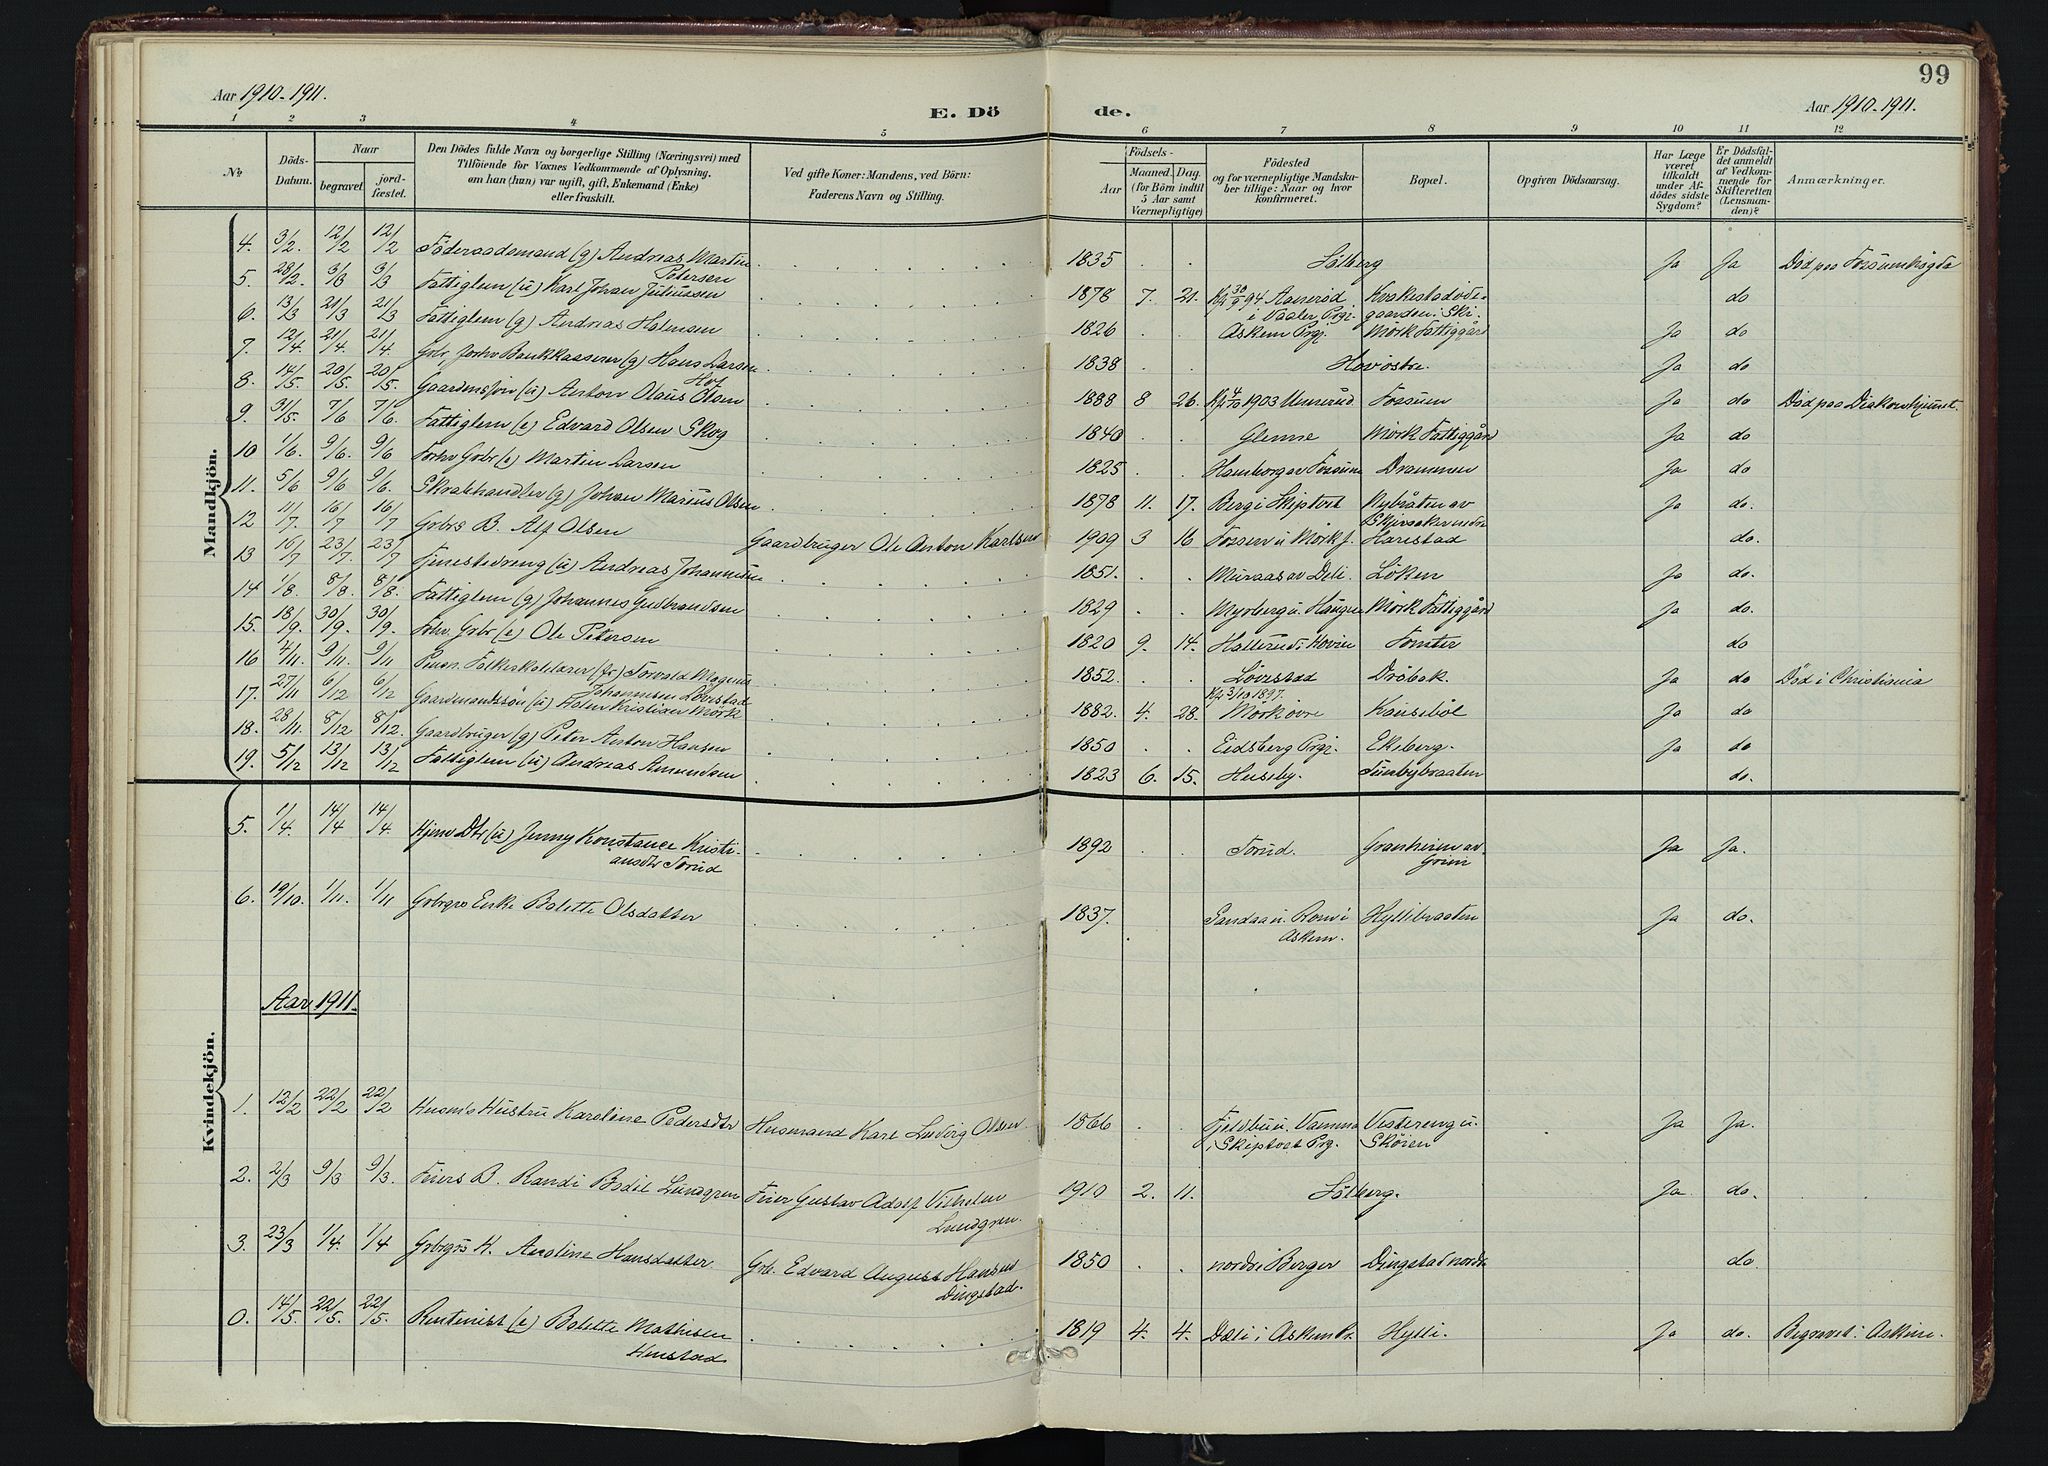 99
Aar 1910-1911.
E. Dö
de.
Aar 1910-1911.
1 2 3 4 5 6 7 8 9 10 11 12
No.
Döds-Datum.
Naar
begravet.
jord-fæstet.
Den Dödes fulde Navn og borgerlige Stilling (Næringsvei) med
Tilföiende for Voxnes Vedkommende af Oplysning,
om han (hun) var ugift, gift, Enkemand (Enke)
eller fraskilt.
Ved gifte Koner: Mandens, ved Börn:
Faderens Navn og Stilling.
Födsels-
Aar
Maaned. Dag.
(for Börn indtil
5 Aar samt
Værnepligtige)
Födested
og for værnepligtige Mandska-
ber tillige: Naar og hvor
konfirmeret.
Bopæl.
Opgiven Dödsaarsag.
Har Læge
været
tilkaldt
under Af-
dödes sidste
Sygdom?
Er Dödsfal-
det anmeldt
af Vedkom-
mende for
Skifteretten
(Lensman-
den)?
Anmærkninger.
Mandkjön.
4. 3/2. 12/2 12/2 Föderaadsmand (g) Andreas Martin Petersen 1835 Sölberg Ja Ja Död paa Fossumhögda
5. 28/2. 3/3 3/3 Fattiglem (u) Karl Johan Juliussen 1878 7. 21. Kf 30/9 94 Aanerød i Vaaler Prgj. Kvakestadøde-gaarden i Ski. do
6. 13/3 21/3 21/3 Fattiglem (g) Andreas Halmsen 1826 Askem Prgj. Mörk Fattiggård Ja do
7. 12/4. 21/4. 21/4. Gbr, forhv Bankkasserer (g) Hans Larsen Hof 1838 Hovöstre. Ja do
8. 14/5. 20/5. 20/5. Gaardmssön (u) Anton Olaus Olsen 1888 8 26. Kf 4/10 1903 Fossum Ja do Död paa Diakonhjemmet.
9. 31/5. 7/6 7/6. Fattiglem (e) Edvard Olsen Skog 1840 Glenne Mörk Fattiggård Ja do
10 1/6. 9/6. 9/6 Forhv Grbr (e) Martin Larsen 1825 Hamborg av Fossum Drammen Ja do
11. 5/6 9/6 9/6. Skrabhandler (g) Johan Marius Olsen 1878 11. 17. Berg i Skiptvet Nybråten av Skjersaker nedre Ja do.
12 11/7. 16/7 16/7 Gbrs B. Alf Olsen Gaardbruger Ole Anton Karlsen 1909 3 16 Fossen u Mörk f. Harestad do.
13 16/7 23/7. 23/7 Tjenestedreng (u) Andreas Johannesen 1851. Muraas av Deli. Löken Ja do.
14 1/8. 8/8. 8/8. Fattiglem (g) Johannes Gudbrandsen 1829 Myrberg u. Haugen Mörk Fattiggård Ja do.
15. 18/9. 30/9. 30/9. Fohv. Grbr (e) Ole Petersen 1820 9. 14. Hallerud i Hovin Tomter do
16 4/11. 9/11. 9/11 Pens. Folkeskolelærer (fr) Torvald Magnus Johannesen Lövestad 1852. Lövestad Dröbak. Ja do Död i Christiania
17. 27/11 6/12 6/12 Gaardmandssön (u) Halvor Kristian Mörk 1882. 4. 28. Kf 3/10 1897. Mörk övre Ja do
18. 28/11. 8/12 8/12. Gaardbruger (g) Peter Anton Hansen 1850 Eidsberg Prgj. Ekeberg. Ja do
19. 5/12 13/12 13/12 Fattiglem (u) Andreas Amundsen 1823 6. 15. Huseby. Tunbybraaten do.
Kvindekjön.
5. 1/4. 14/4 14/4 Hjemv Dtr (u) Jenny Konstance Kristi-ansdtr Torud 1892 Torud. Granheim av Ja Ja.
6. 19/10. 1/11. 1/11 Gbrgrs Enke Bolette Olsdatter 1837. Sandaa u. Rom i Askem. Hyllibraaten Ja do.
Aar 1911.
1. 12/2 22/2 22/2 Husmds Hustru Karoline Pedersdtr Husmand Karl Ludvig Olsen 1866 Fjeldbu u. Vamma i Skiptvet Prg. Vestereng u. Skøien Ja Ja.
2. 2/3 9/3 9/3. Feiers B. Randi Bodil Lundgren Feier Gustav Adolf Vilhelm Lundgren. 1910 2. 11. Sölberg. Ja. do.
3. 23/3 1/4. 1/4 Grbrgrs H. Anoline Hansdatter Grb. Edvard August Hansen Dingstad. 1850 nordre Berger Dingstad nordre do.
0. 14/5. 22/5. 22/5. Rentenist (e) Bolette Mathisen Henstad 1819 4. 4. Dæli i Askem Pr. Hylli. Ja do. Begravet i Askim.